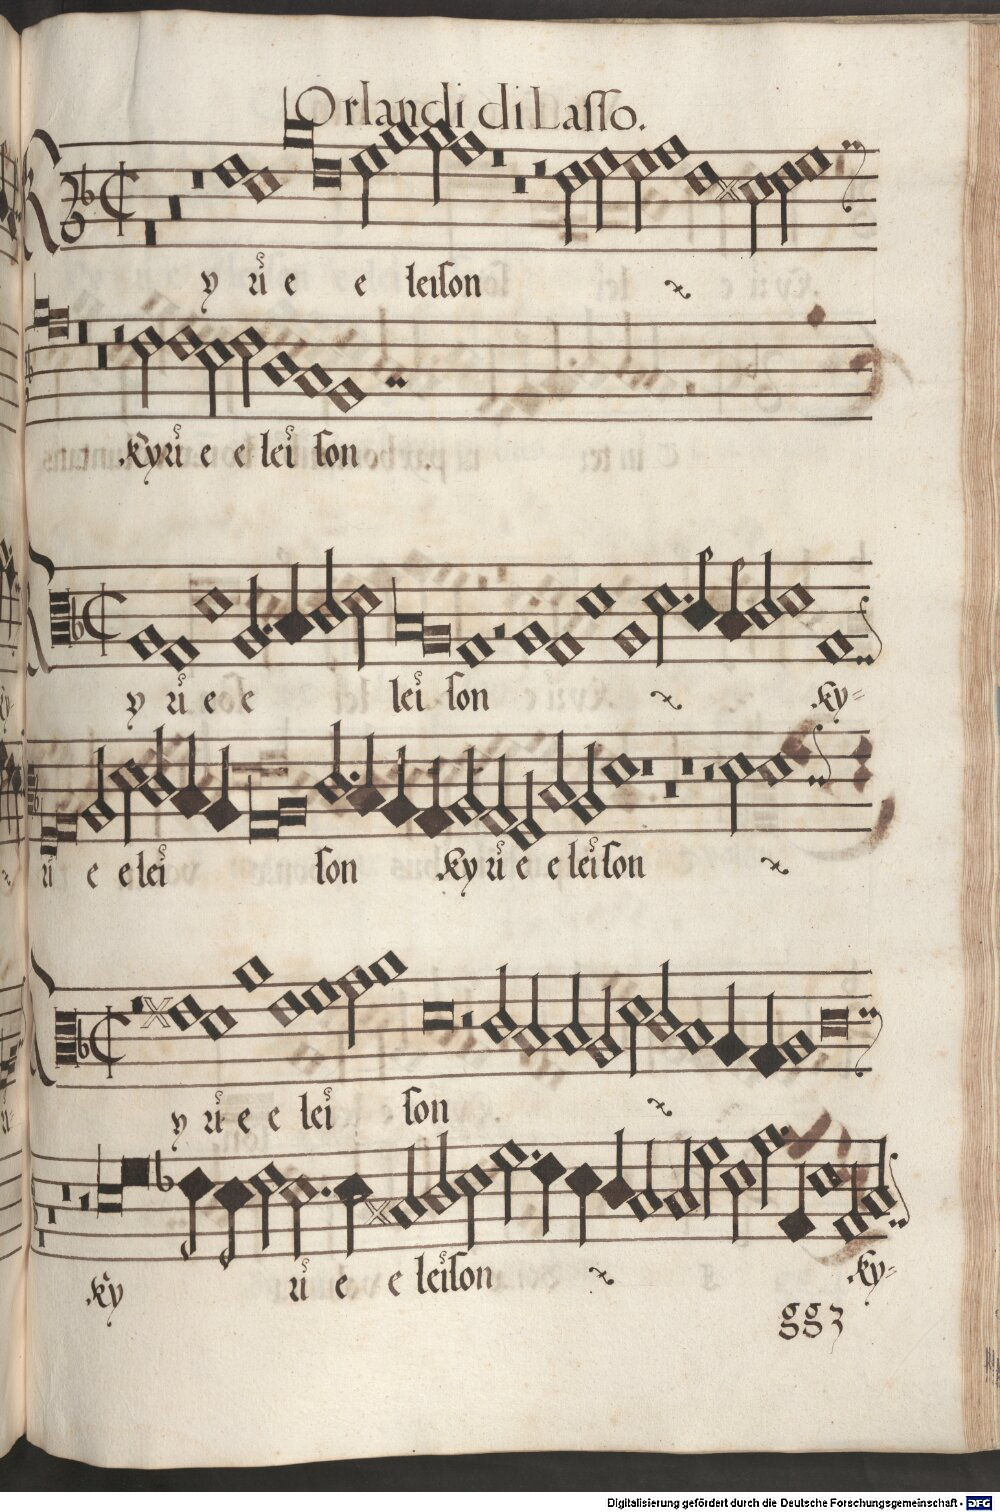 Orlandi di Lasso.
y ri e e leison
Kyri e e lei son
y ri e e lei son ky=
ri e e lei son Kyri e e leison
y ri e e lei son
Ky ri e e leison Ky=
gg3
Digitalisierung gefördert durch die Deutsche Forschungsgemeinschaft - DFG